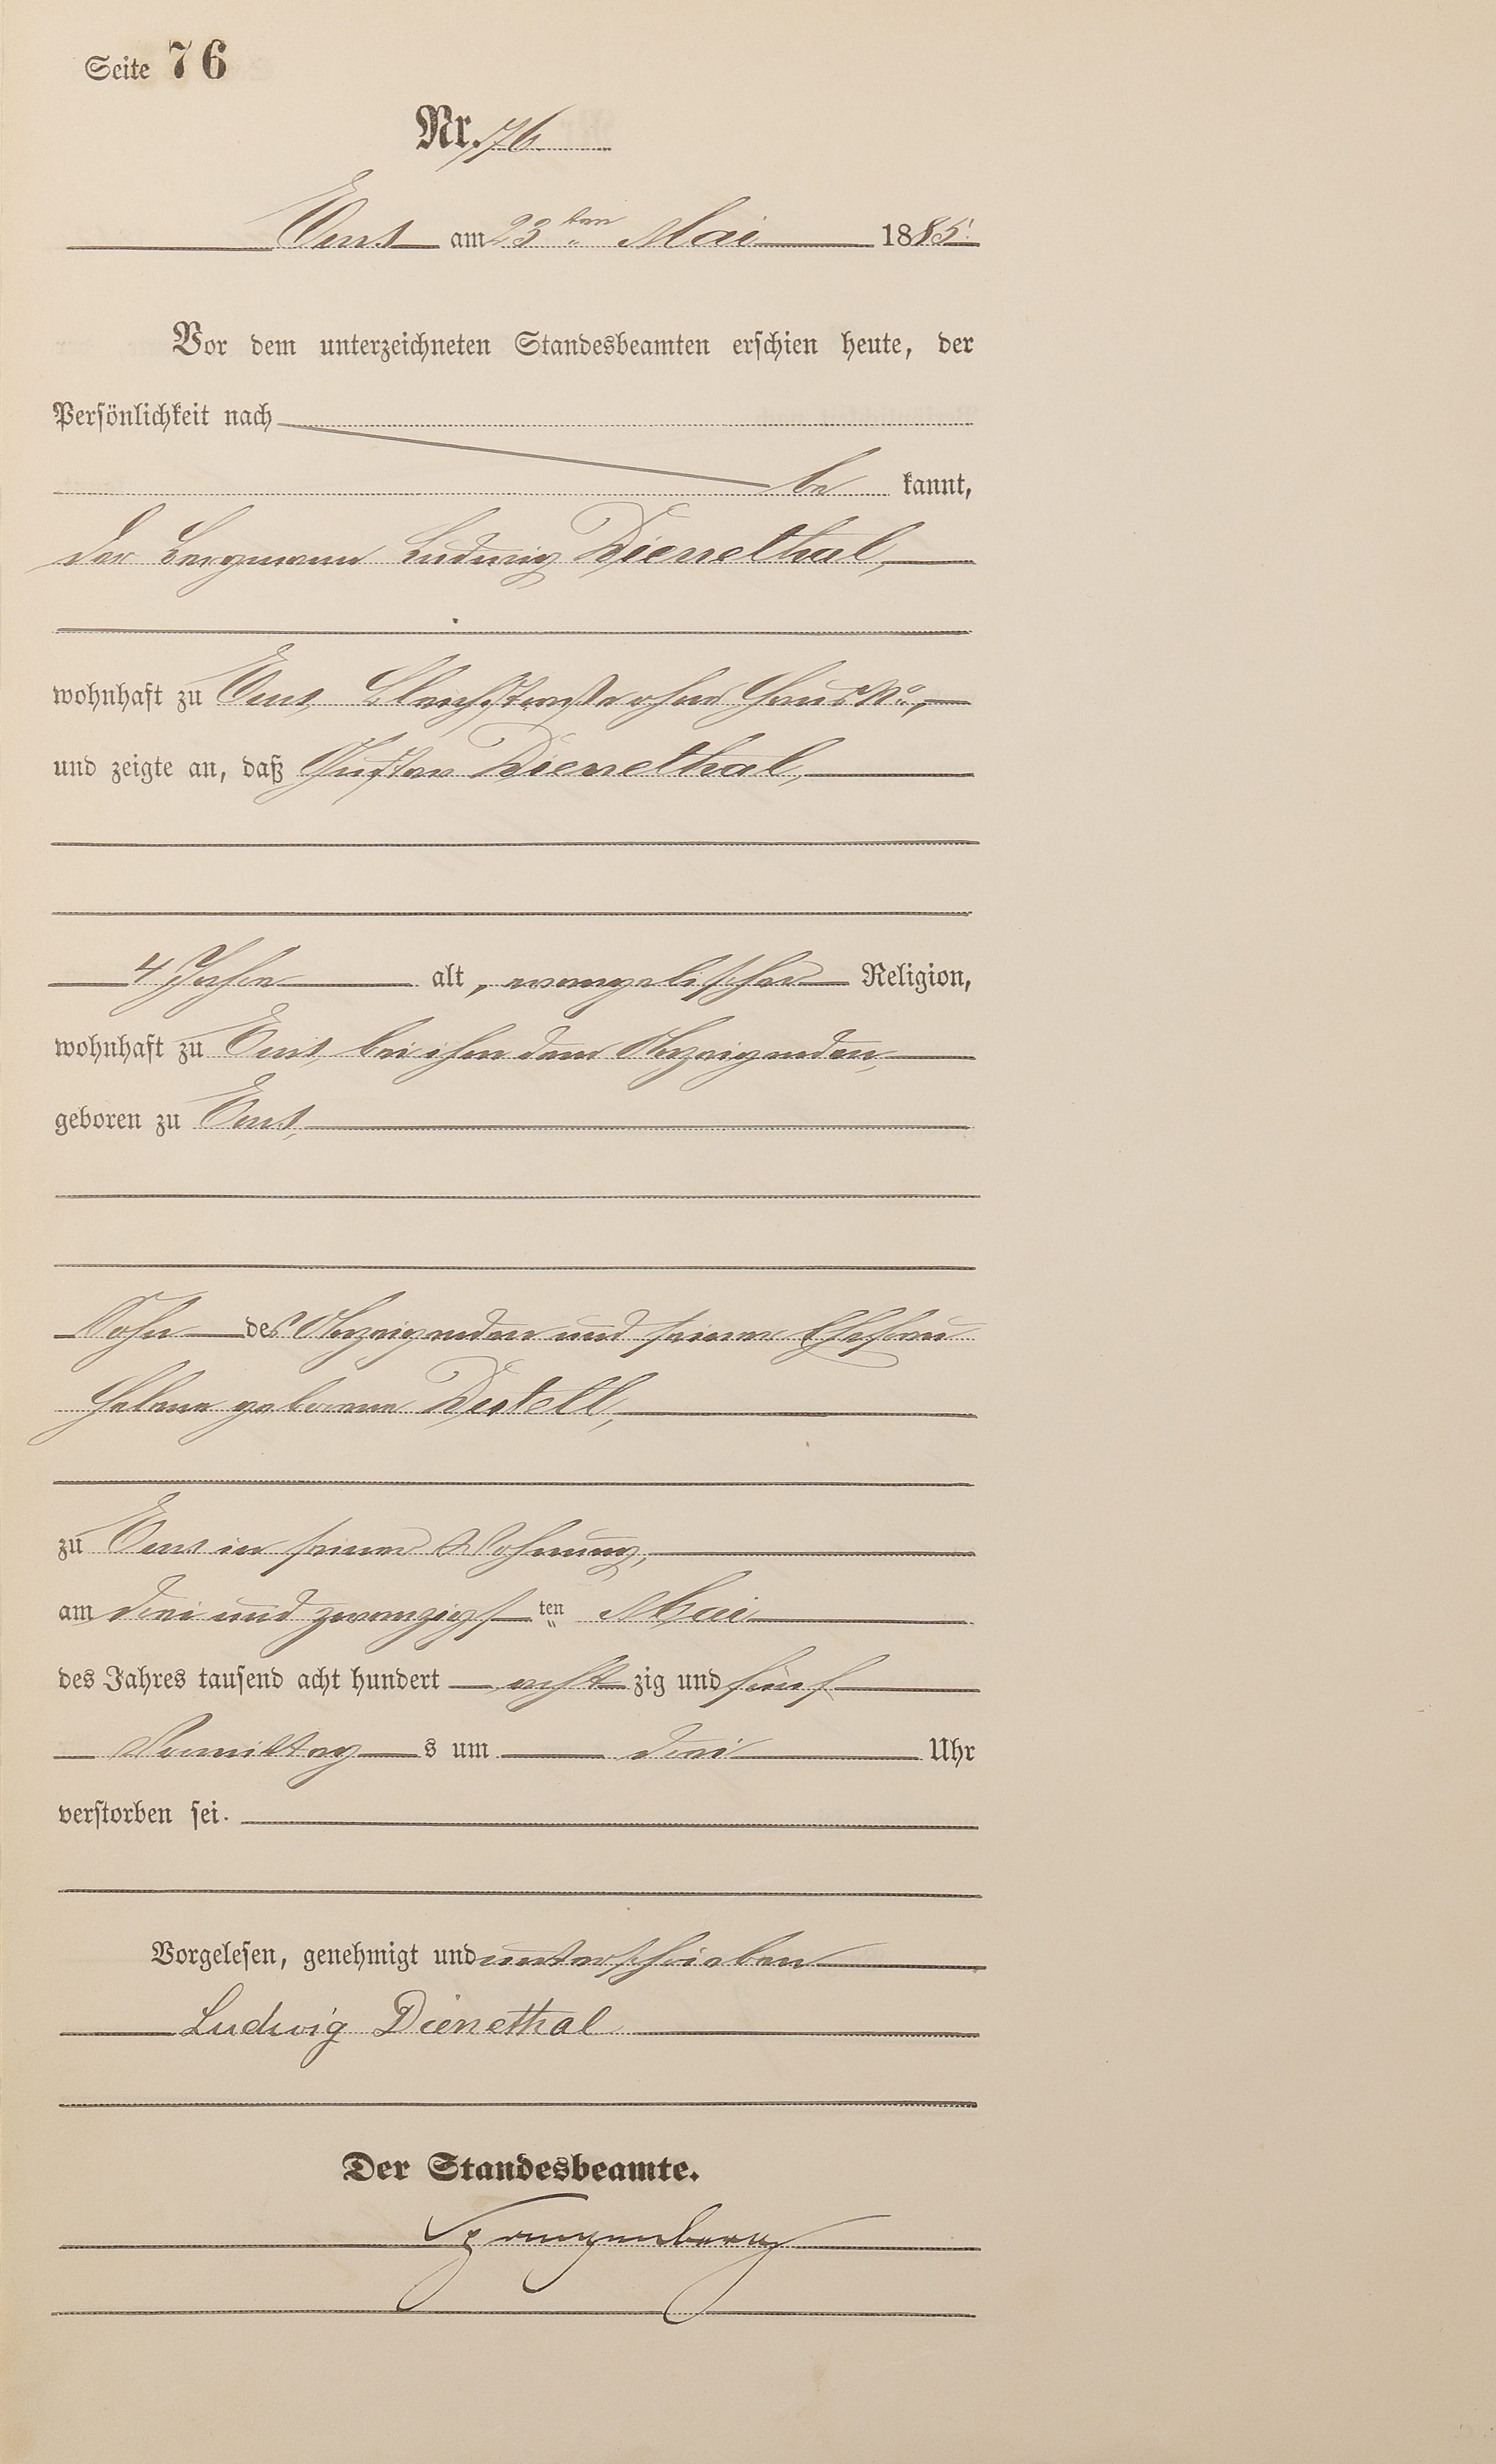 Seite 76
Nr. 76
Ems am 23ten Mai 1885.
Vor dem unterzeichneten Standesbeamten erschien heute, der
Persönlichkeit nach
be kannt,
der Bergmann Ludwig Dienethal,
wohnhaft zu Ems, Bleichstraße ohne Haus No,
und zeigte an, daß Gustav Dienethal,
4 Jahre alt, evangelischer Religion,
wohnhaft zu Ems, bei ihm dem Anzeigenden,
geboren zu Ems,
Sohn des Anzeigenden und seiner Ehefrau
Helene geborene
zu Ems in seiner Wohnung,
am drei und zwanzigsten Mai
des Jahres tausend acht hundert acht zig und fünf
Vormittag s um drei Uhr
verstorben sei.
Vorgelesen, genehmigt und unterschrieben
Ludwig Dienethal
Der Standesbeamte.
Spangenberg